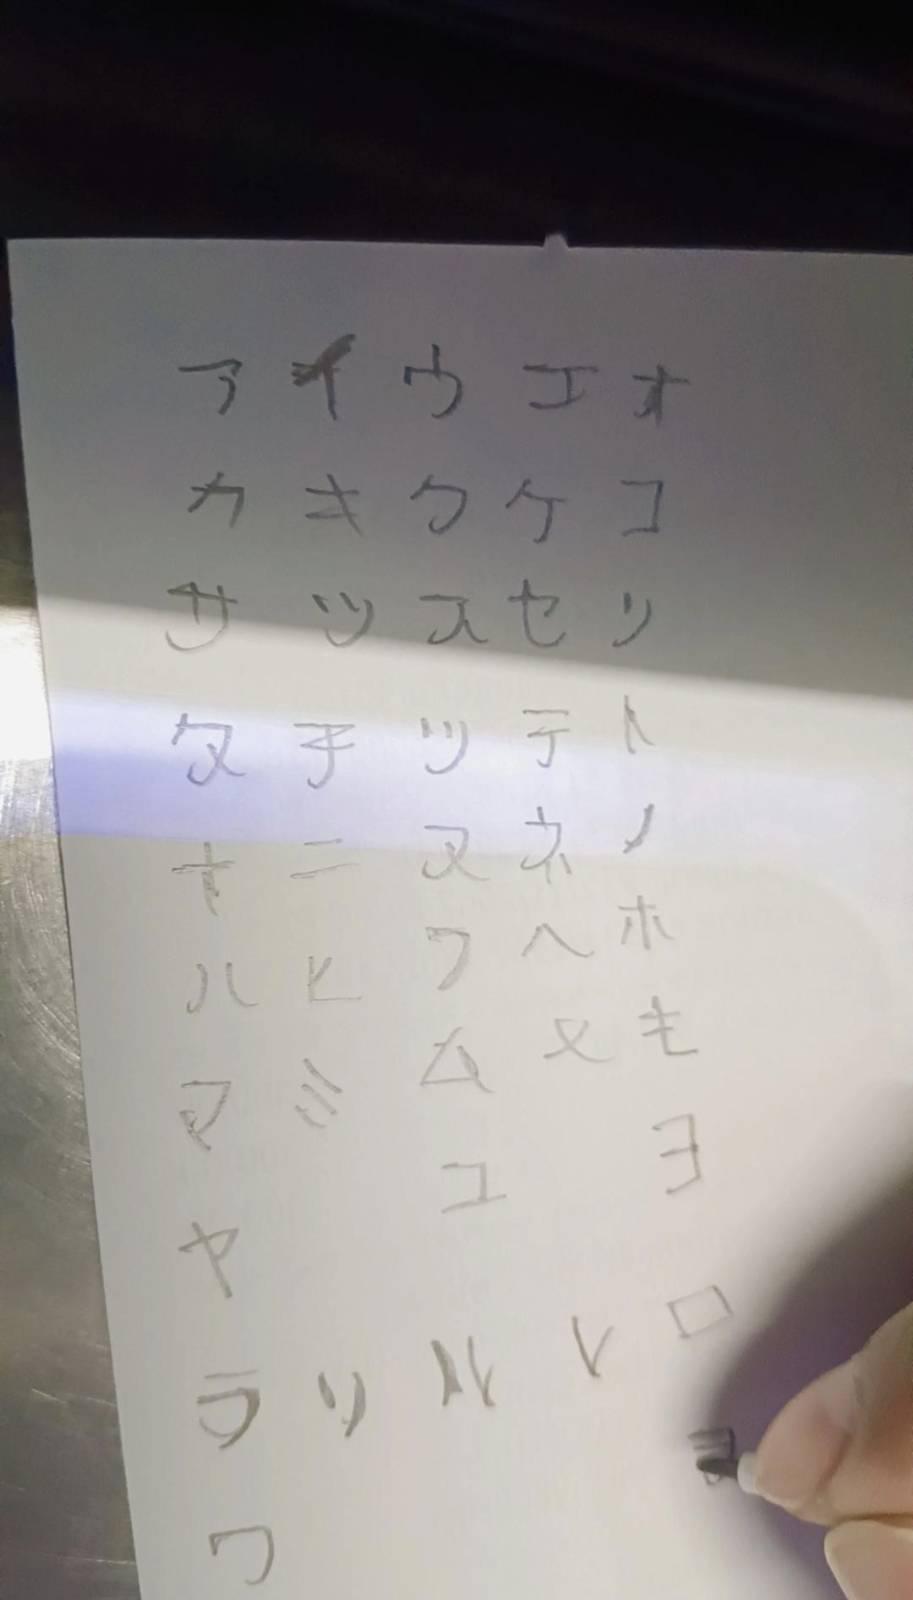 ア イ ウ エ オ
カ キ ク ケ コ
サ ツ ス セ ソ
タ チ ツ テ ト
ナ ニ ヌ ネ ノ
ハ ヒ フ ヘ ホ
マ ミ ム メ モ
ヤ ユ ヨ
ラ リ ル レ ロ
ワ